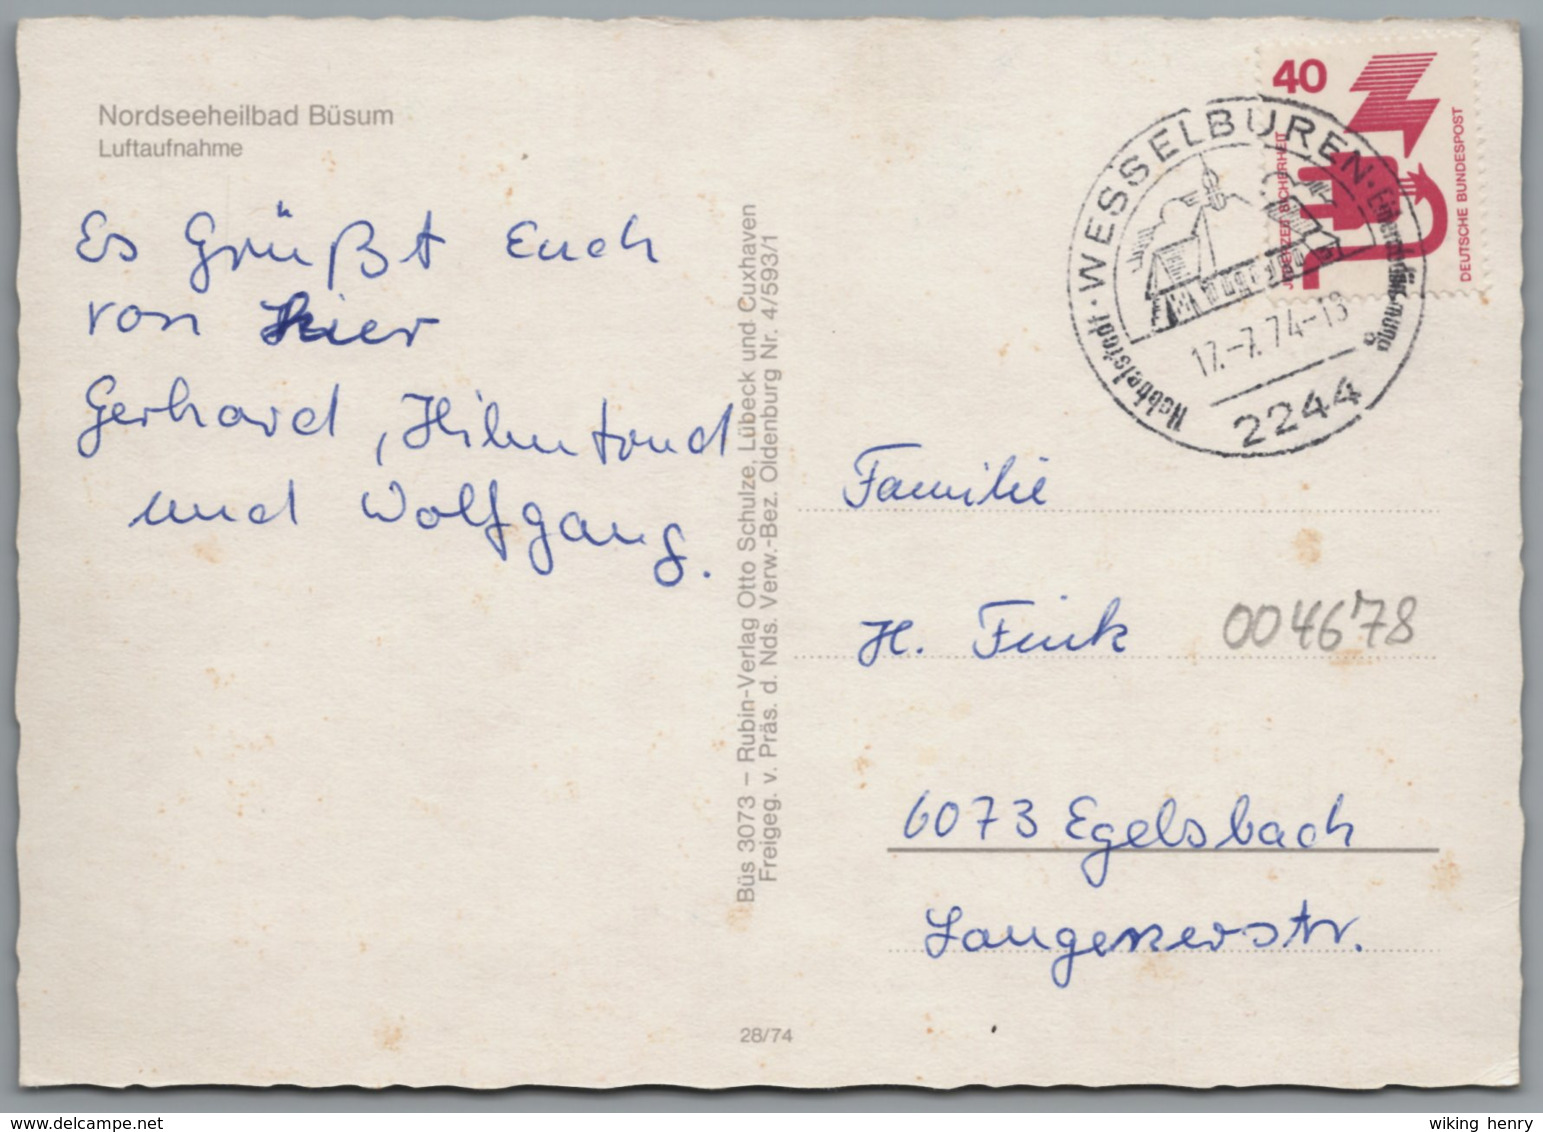 Nordseeheilbad Büsum
Luftaufnahme
Es Grüßt Euch
von hier
Gerhard,
und Wolfgang.
Büs 3073 – Rubin-Verlag Otto Schulze, Lübeck und Cuxhaven
Freigeg. v. Präs. d. Nds. Verw.-Bez. Oldenburg Nr. 4/593/1
28/74
40
JEDERZEIT SICHERHEIT
DEUTSCHE BUNDESPOST
WESSELBUREN
Hebbelstadt
17.-7.74-18
2244
Familie
H. Fink
004678
6073 Egelsbach
Langenerstr.
delcampe.net
wiking henry